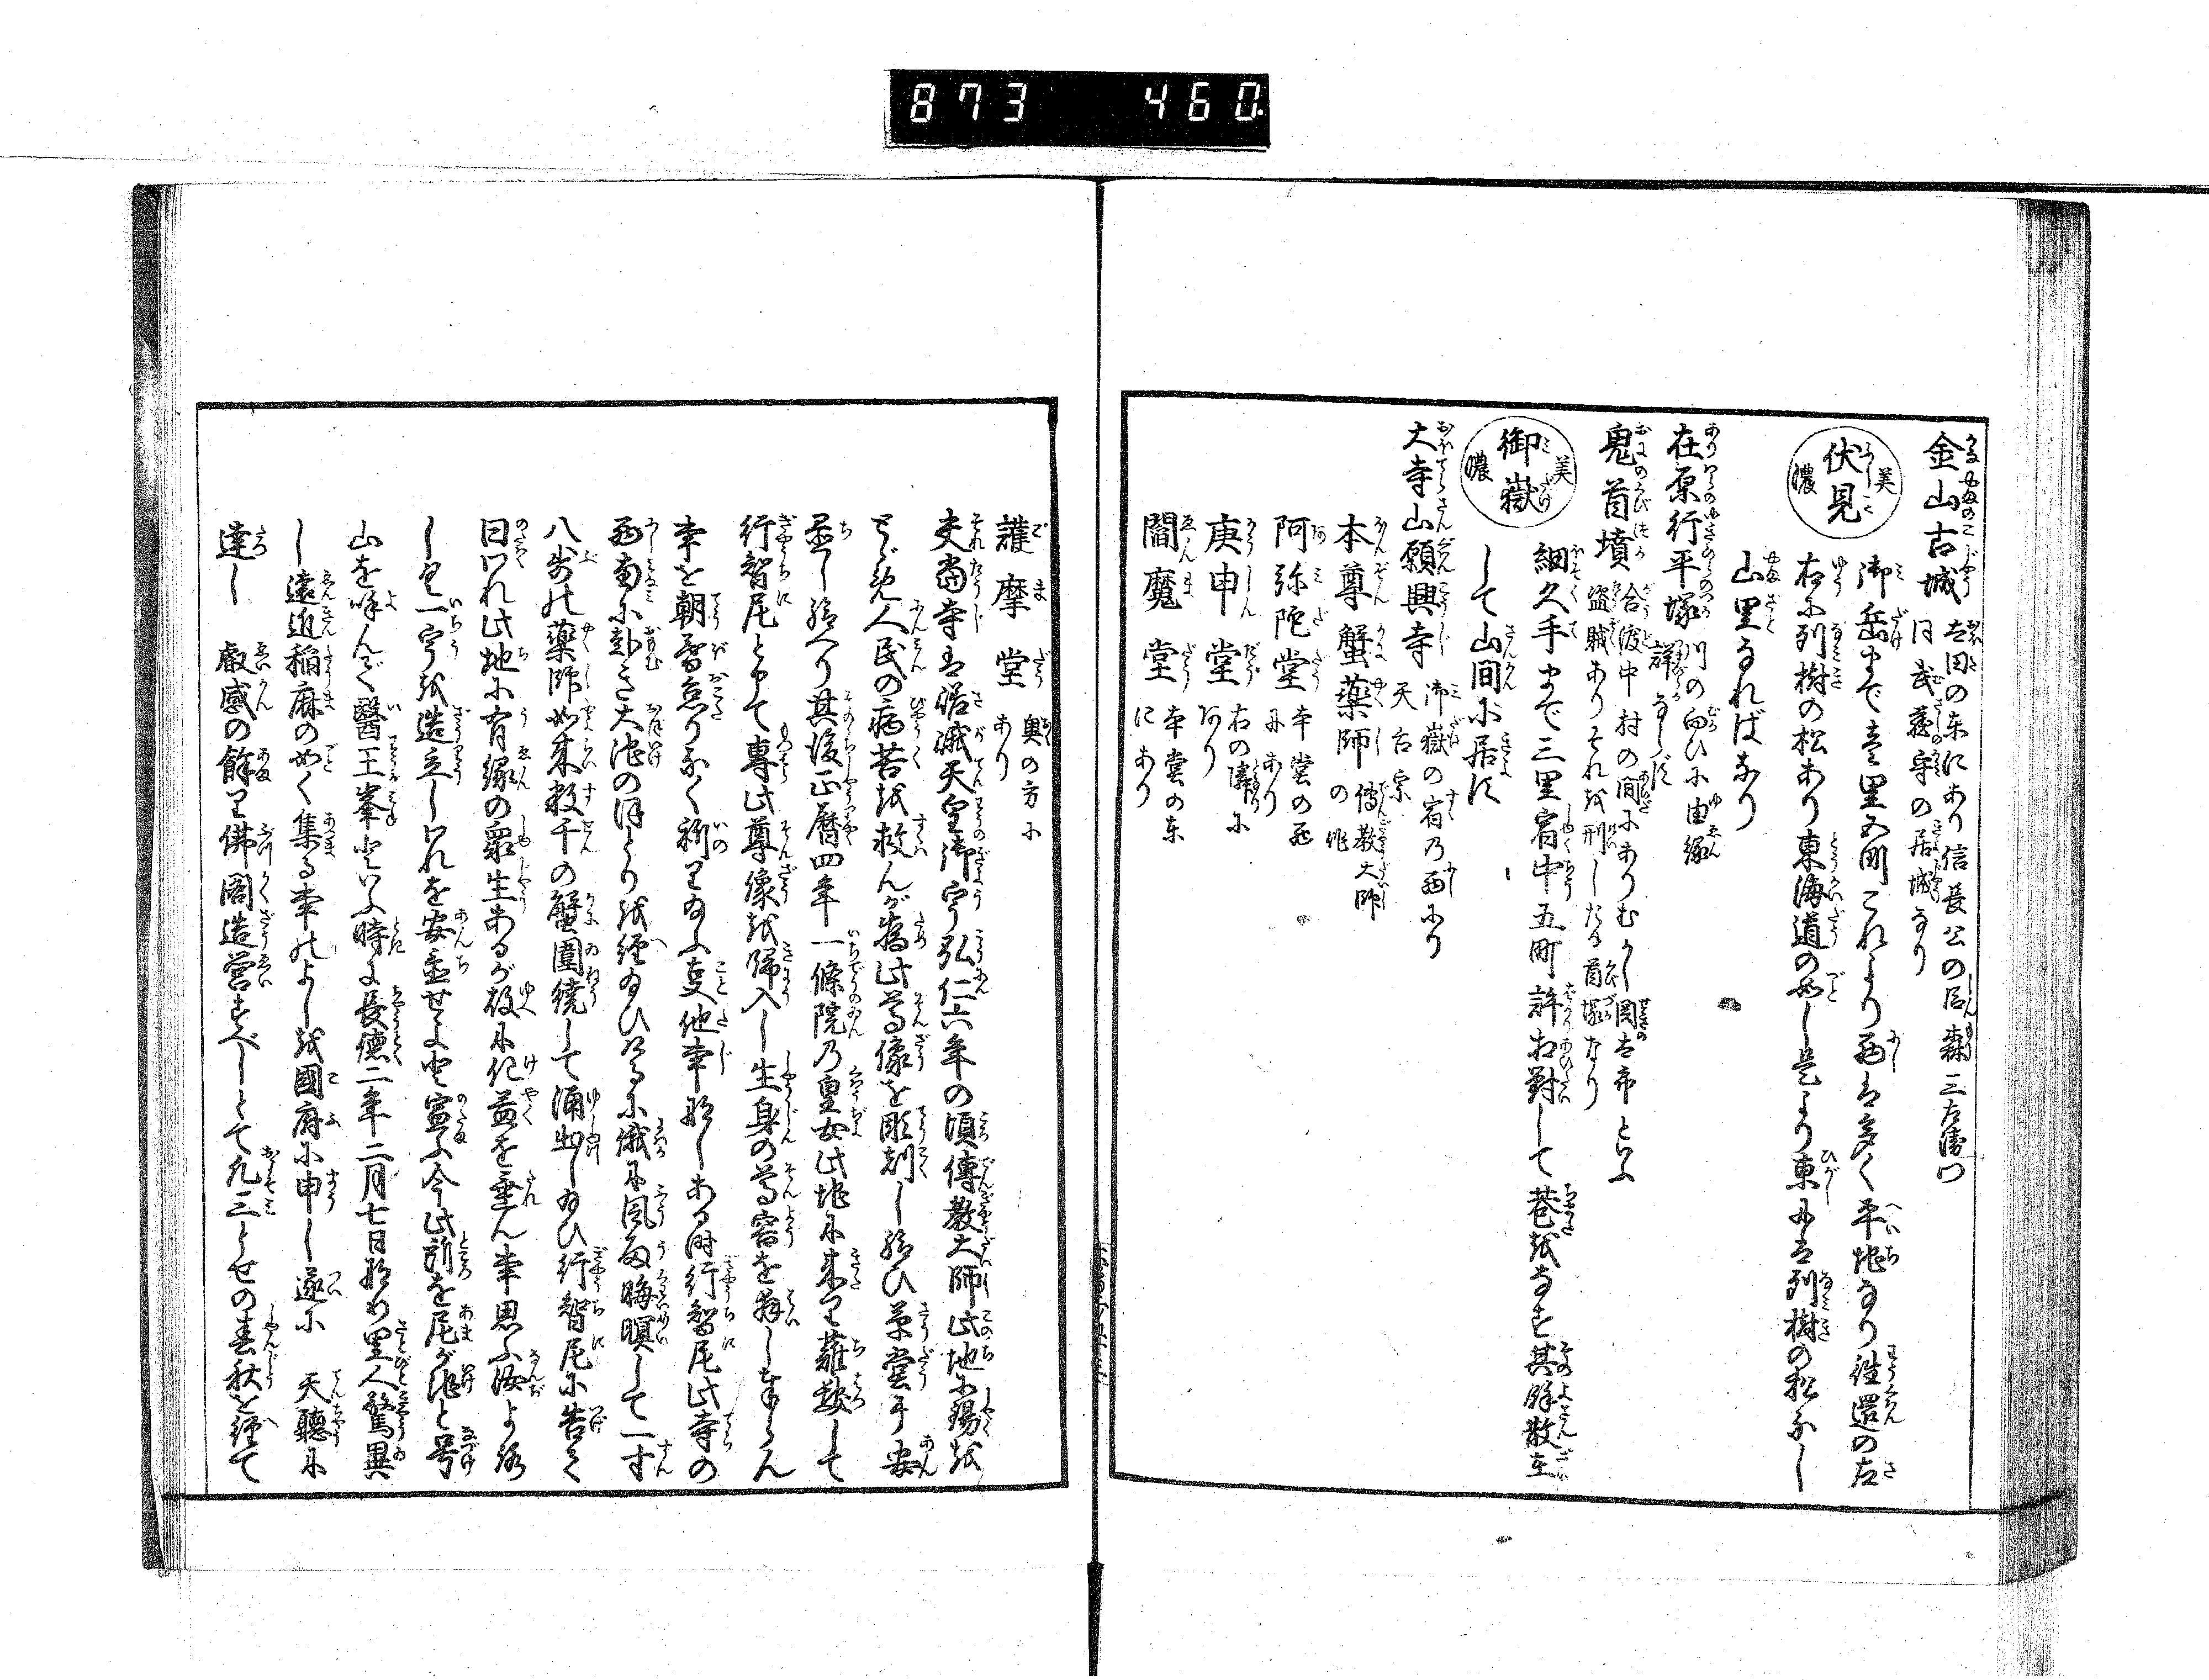 873 460
金山古城 太田の東にあり信長公の臣森三左衛門
同武蔵守の居城なり
美濃 伏見
御岳まで壱里五町これより西は多く平地なり往還の左
右に列樹の松あり東海道の如し是より東には列樹の松なし
山里なればなり
在原行平塚 川の向ひに由縁
詳ならず
鬼首墳 合渡中村の間にありむかし関太郎といふ
盗賊ありそれを刑したる首塚なり
美濃 御嶽
細久手まで三里宿中五町許相対して巷をなす其余散在
して山間に居す
大寺山願興寺 御嶽の宿乃西にあり
天台宗
本尊蟹薬師 伝教大師
の作
阿弥陀堂 本堂の西
にあり
庚申堂 右の隣に
あり
閻魔堂 本堂の東
にあり
護摩堂 奥の方に
あり
夫当寺は嵯峨天皇御宇弘仁六年の頃伝教大師此地に錫を
とゞめ人民の病苦を救んが為此尊像を彫刻し給ひ草堂に安
置し給へり其後正暦四年一條院乃皇女此地に来り薙髪して
行智尼とて専此尊像を帰入し生身の尊容を拝し奉らん
事を朝暮怠りなく祈り給ふ事他事なしある時行智尼此寺の
西南に赴き大池のほとりを経給ひけるに俄に風雨晦瞑して一寸
八歩の薬師如来数千の蟹囲繞して涌出し給ひ行智尼に告て
曰われ此地に有縁の衆生あるが故に化益を垂ん事思ふ汝よろ
しく一宇を造立しわれを安置せよと宣ふ今此所を尼が池と号
山を呼んで医王峯といふ時は長徳二年二月七日なり里人驚異
し遠近稲麻の如く集る事のよしを国府に申し遂に 天聴に
達し 叡感の余り仏閣造営すべしとて凡三とせの春秋を経て